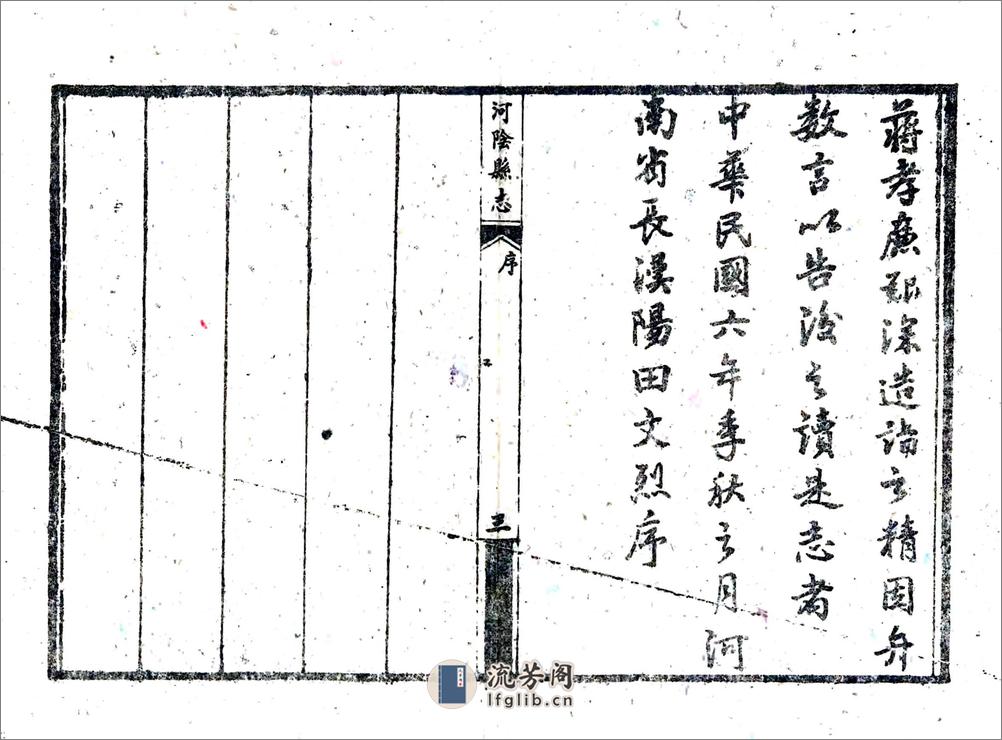 蔣孝廉艱深造詣之精因弁
数言以告後之讀是志者
中華民國六年季秋之月河
南省長漢陽田文烈序
河陰縣志
序
三
流芳阁
lfglib.cn